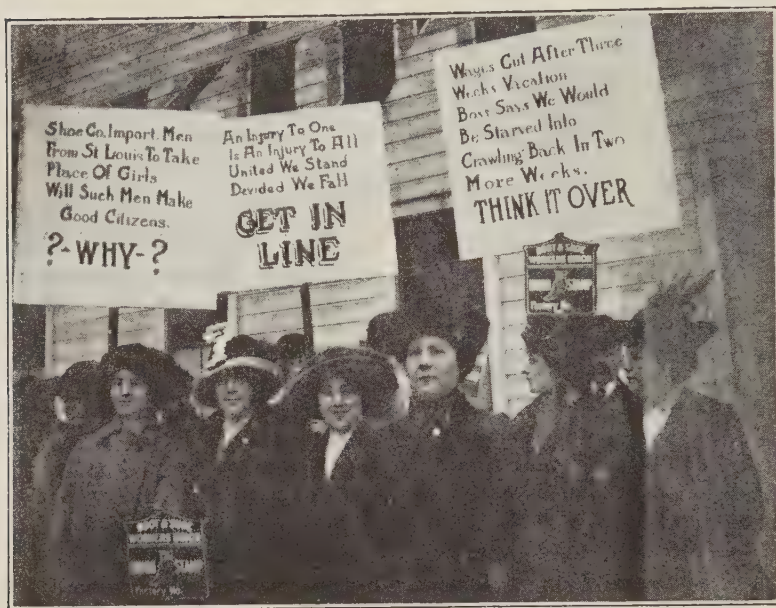 Shoe Co. Import. Men
From St Louis To Take
Place Of Girls
Will Such Men Make
Good Citizens.
?-WHY-?
An Injury To One
Is An Injury To All
United We Stand
Devided We Fall
GET IN
LINE
Wages Cut After Three
Weeks Vacation
Boss Says We Would
Be Starved Into
Crawling Back In Two
More Weeks.
THINK IT OVER
Factory No.